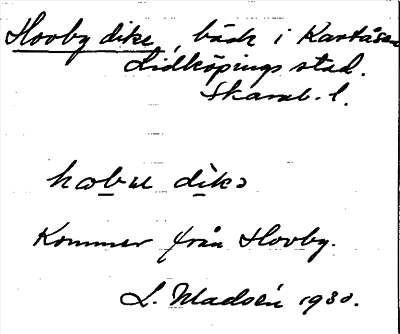 Hovby dike, bäck i Kartåsen
Lidköpings stad.
Skarab. l.
Kommer från Hovby.
L. Madsén 1930.